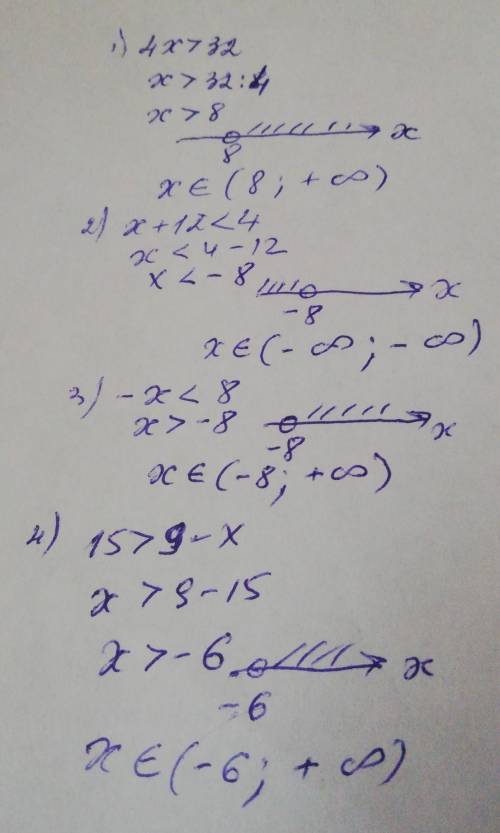 1) 4x>32
x > 32:4
x > 8
8 x
x ∈ (8; +∞)
2) x+12<4
x < 4-12
x < -8
-8 x
x ∈ (-∞; -∞)
3) -x < 8
x > -8
-8 x
x ∈ (-8; +∞)
4) 15>9-x
x > 9-15
x > -6
-6 x
x ∈ (-6; +∞)